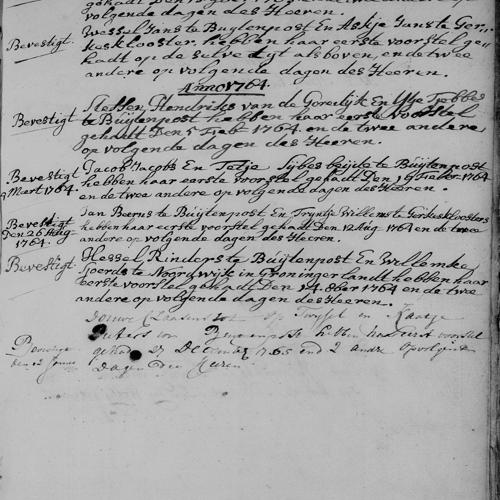 volgende dagen des Heeren.
Bevestigt. Wessel Jans te Buijtenpost En Askje Jans te Ger-
kesklooster. hebben haar eerste voorstel ge-
hadt op de selve dgt als boven, en de twee
andere op volgende dagen des Heeren.
Anno 1764.
Bevestigt Steffen Hendriks van de Goredijk En Ytje Tjebbes
te Buijtenpost hebben haar eerste voorstel
gehadt Den 5 Febr 1764. en de twee andere
op volgende dagen des Heeren.
Bevestigt Jacob Jacobs En Tetje Sijbes beijde te Buijtenpost
4 Mart 1764. hebben haar eerste voorstel gehadt Den 19 Feber 1764
en de twee andere op volgende dagen des Heeren.
Jan Beerns te Buijtenpost En Trijntje Willems te Gerkesklooster
Bevestigt hebben haar eerste voorstel gehadt Den 12 Aug 1764 en de twee
Den 26 Aug andere op volgende dagen des Heeren.
1764.
Bevestigt Hessel Rinders te Buijtenpost En Willemke
Sjoerds te Noordwijk in Groningerlandt hebben haar
eerste voorstel gehadt Den 14. 8ber 1764 en de twee
andere op volgende dagen des Heeren.
Douwe Claasens op Twysel en
Pieters hebben haar eerst voorstel
gehad 27 December 1765 end 2 andre opvolgende
Dagen Des Heeren.